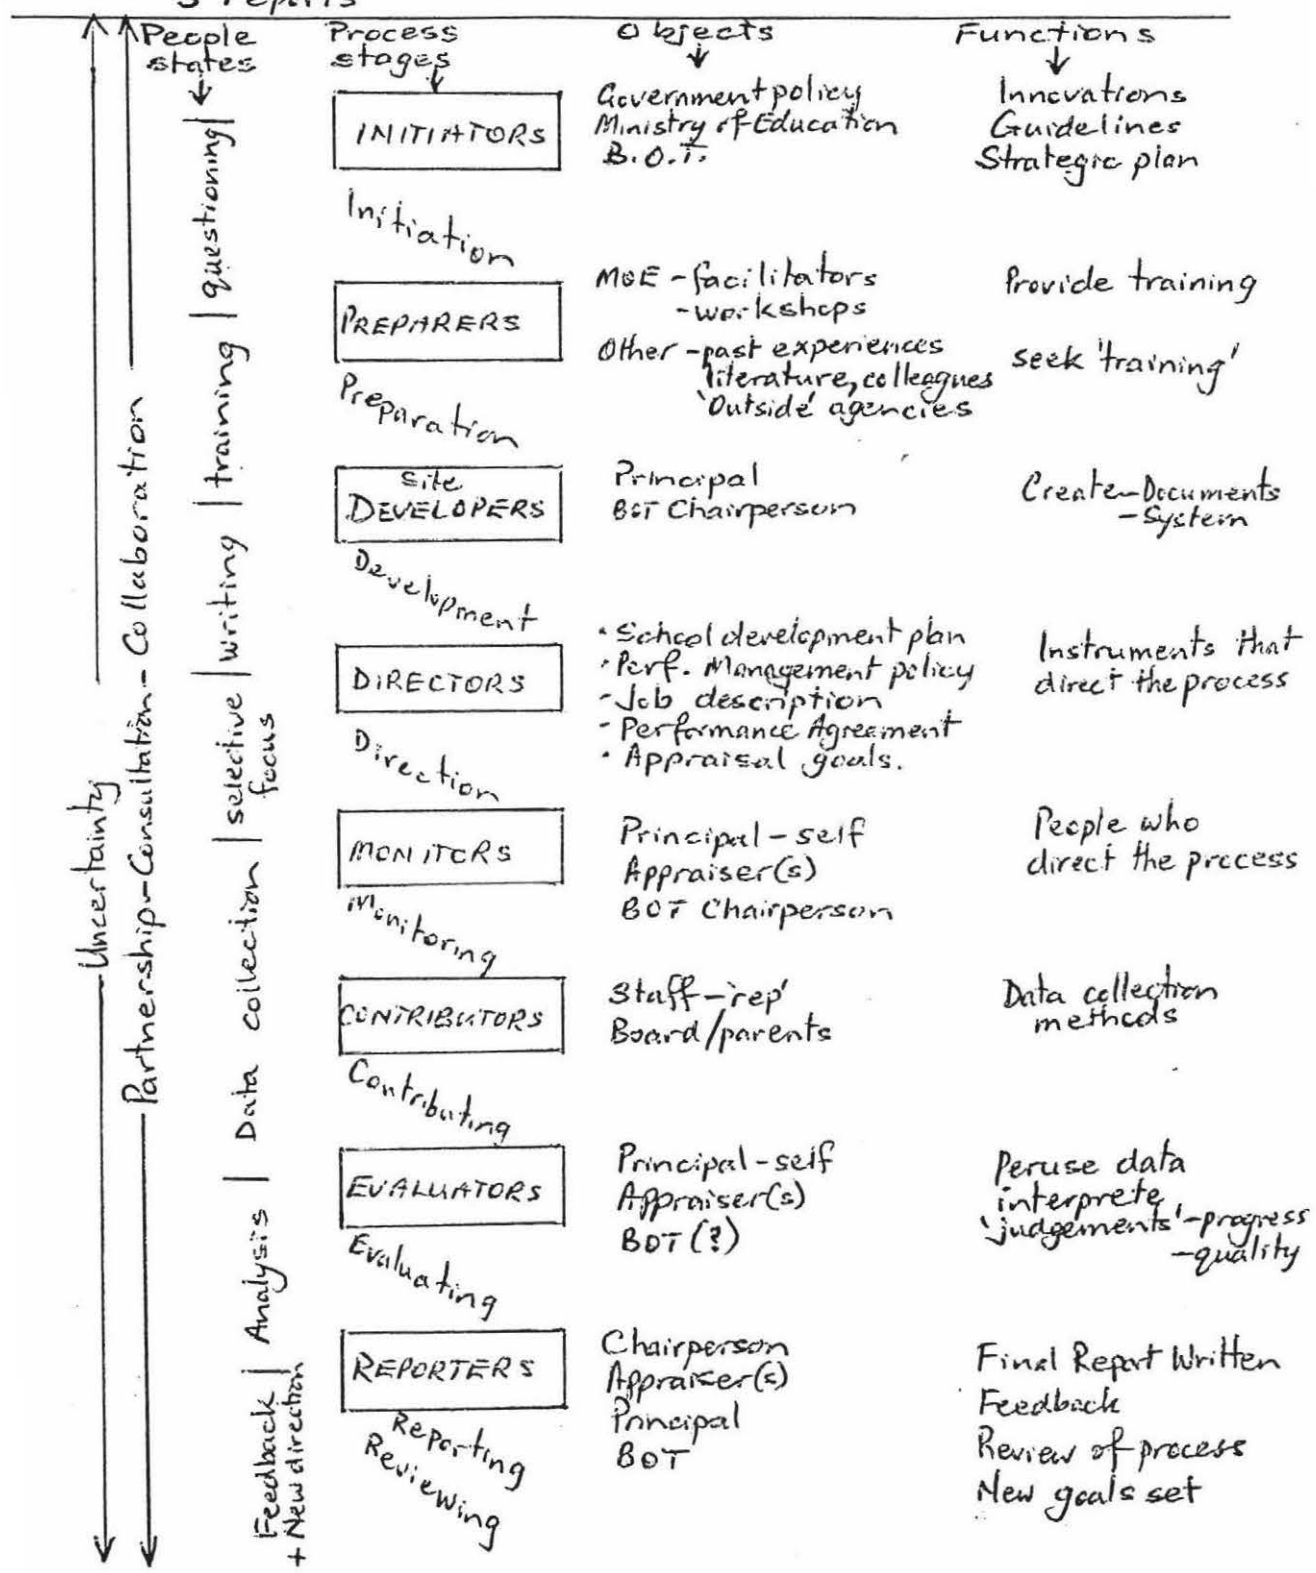 reports
People
states
Process
stages
Objects
Functions
Uncertainty
Partnership-Consultation-Collaboration
questioning
training
writing
selective
focus
Data collection
Analysis
Feedback
+ New direction
INITIATORS
Government policy
Ministry of Education
B.O.T.
Innovations
Guidelines
Strategic plan
Initiation
PREPARERS
MOE - facilitators
- workshops
Other - past experiences
literature, colleagues
'Outside' agencies
Provide training
seek 'training'
Preparation
Site
DEVELOPERS
Principal
BOT Chairperson
Create - Documents
- System
Development
DIRECTORS
· School development plan
· Perf. Management policy
- Job description
- Performance Agreement
· Appraisal goals.
Instruments that
direct the process
Direction
MONITORS
Principal - self
Appraiser(s)
BOT Chairperson
People who
direct the process
Monitoring
CONTRIBUTORS
Staff - 'rep'
Board/parents
Data collection
methods
Contributing
EVALUATORS
Principal - self
Appraiser(s)
BOT (?)
Peruse data
interprete
'judgements' - progress
- quality
Evaluating
REPORTERS
Chairperson
Appraiser(s)
Principal
BOT
Final Report Written
Feedback
Review of process
New goals set
Reporting
Reviewing